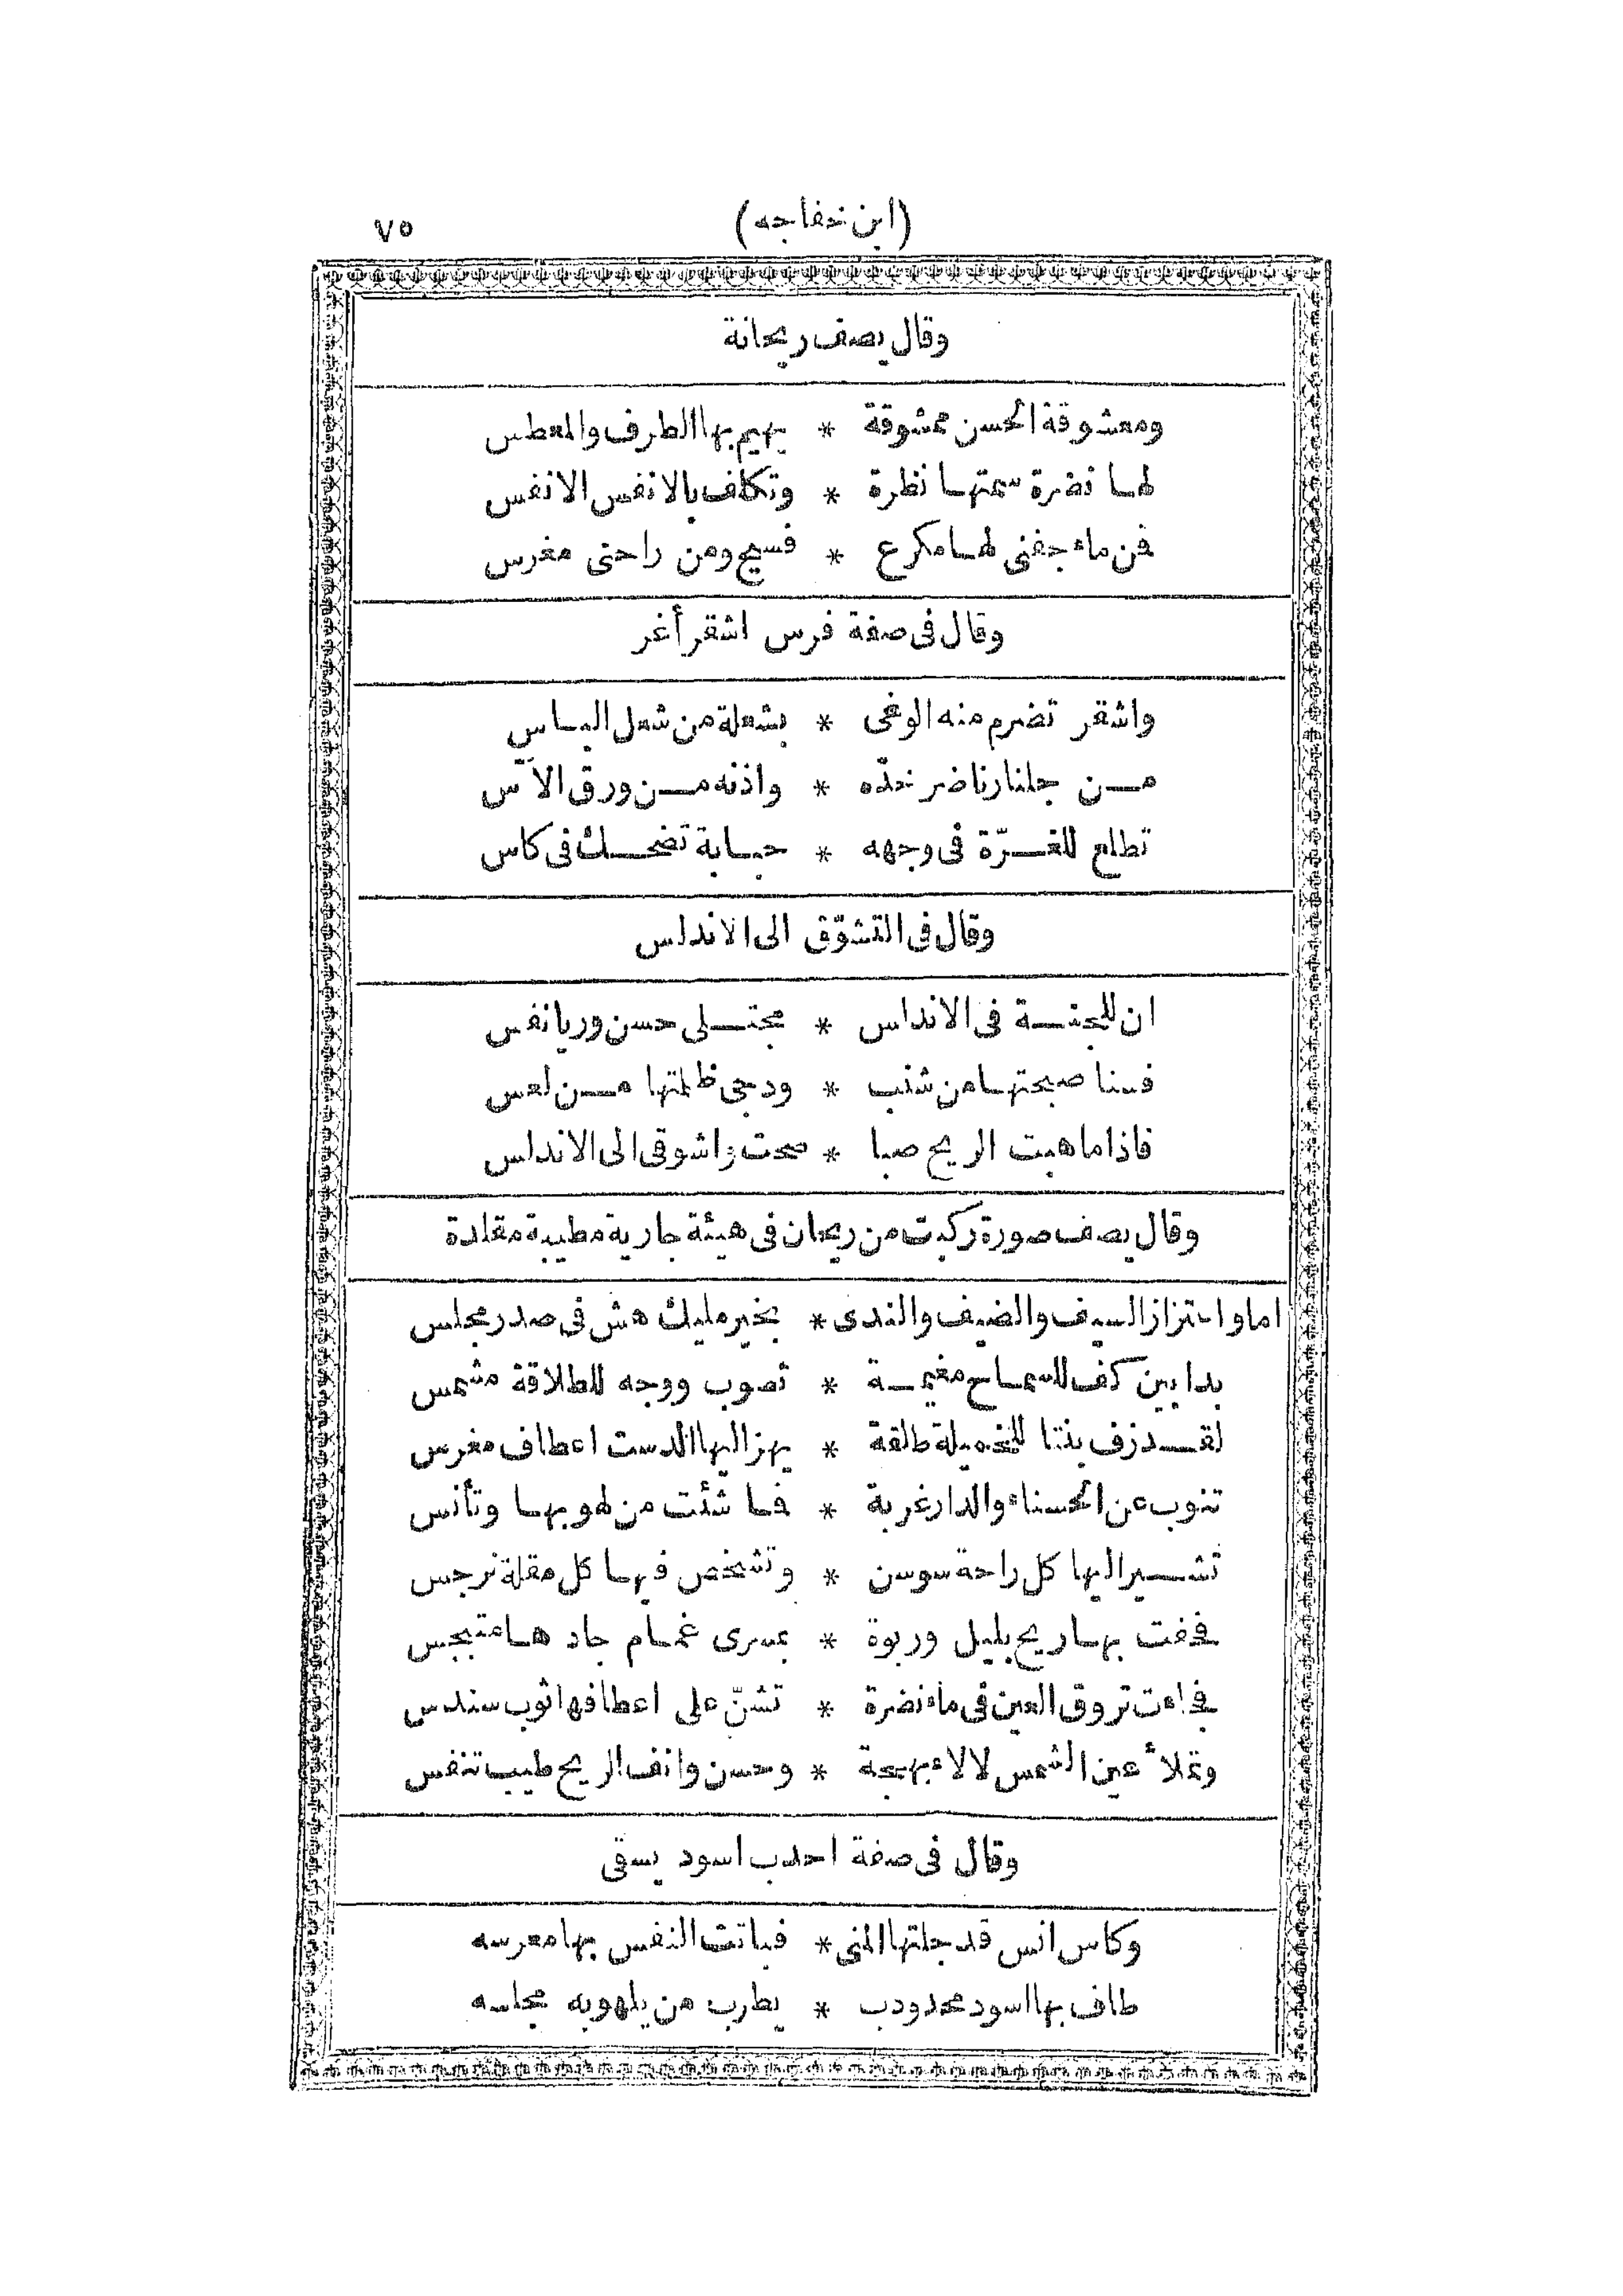 (ابن خفاجه)
٧٥
وقال يصف ريحانة
ومعشوقة الحسن ممشوقة * يهيم بها الطرف والمعطس
لها نضرة سمتها نظرة * وتكلف بالانفس الانفس
فمن ماء جفنى لها مكرع * فسيح ومن راحتى مغرس
وقال فى صفة فرس اشقر أغر
واشقر تضرم منه الوغى * بشعلة من شعل الباس
من جلنار ناضر خدّه * واذنه من ورق الآس
تطلع للغرّة فى وجهه * حبابة تضحك فى كاس
وقال فى التشوّق الى الاندلس
ان للجنة فى الاندلس * مجتلى حسن وريا نفس
فسنا صبحتها من شنب * ودجى ظلمتها من لعس
فاذا ما هبت الريح صبا * صحت واشوقى الى الاندلس
وقال يصف صورة ركبت من ريحان فى هيئة جارية مطيبة مقلدة
اما واهتزاز السيف والضيف والندى * بخير مليك هش فى صدر مجلس
بدا بين كف للسماح مغيمة * تصوب ووجه للطلاقة مشمس
لقد زف بنتا للخميلة طلقة * يهز اليها الدست اعطاف مغرس
تنوب عن الحسناء والدار غربة * فما شئت من لهو بها وتأنس
تشير اليها كل راحة سوسن * وتشخص فيها كل مقلة نرجس
فخفت بها ريح بليل وربوة * بمسرى غمام جادها متبجس
فجاءت تروق العين فى ماء نضرة * تشنّ على اعطافها ثوب سندس
وتملأ عين الشمس لالاء بهجة * وحسن وانف الريح طيب تنفس
وقال فى صفة احدب اسود يسقى
وكاس انس قد جلتها المنى * فباتت النفس بها معرسه
طاف بها اسود محدودب * يطرب من يلهو به مجلسه